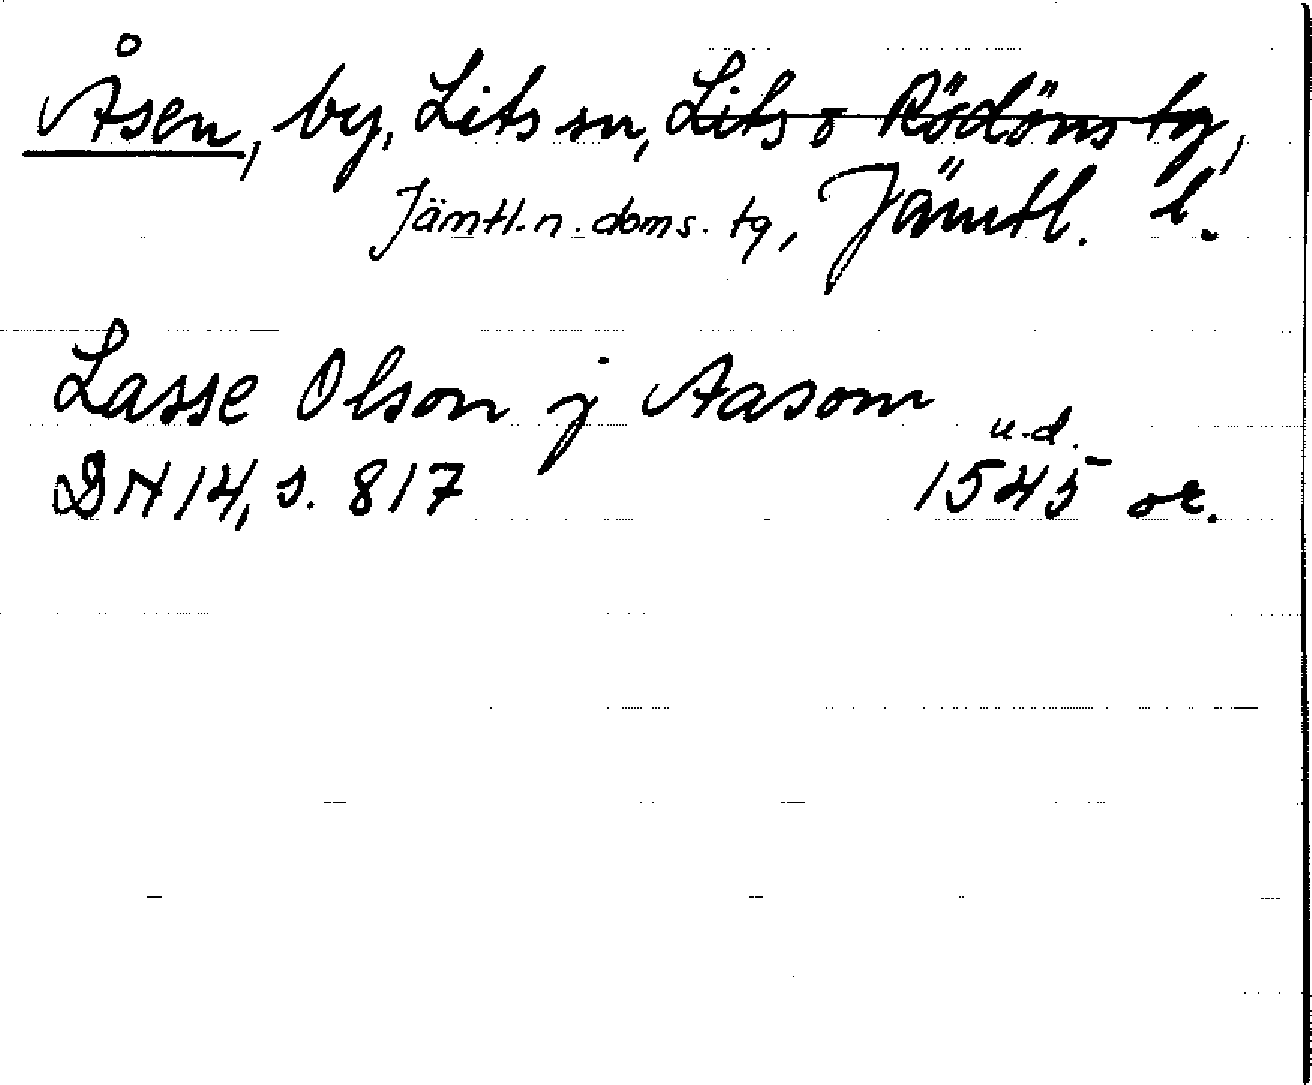 Åsen, by, Lits sn, Lits o Rödöns tg,
Jämtl. n. doms. tg, Jämtl. l.
Lasse Olson j Aasom
u.d.
DN 14, s. 817 1545 or.